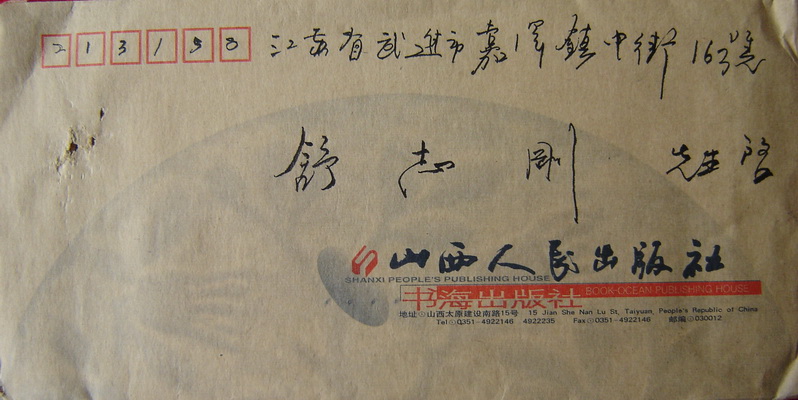 213158 江苏省武进市嘉泽镇中街163號
舒志刚 先生 启
山西人民出版社
SHANXI PEOPLE'S PUBLISHING HOUSE
书海出版社 BOOK-OCEAN PUBLISHING HOUSE
地址⊙山西太原建设南路15号 15 Jian She Nan Lu St, Taiyuan, People's Republic of China
Tel⊙0351-4922146 4922235 Fax⊙0351-4922146 邮编⊙030012